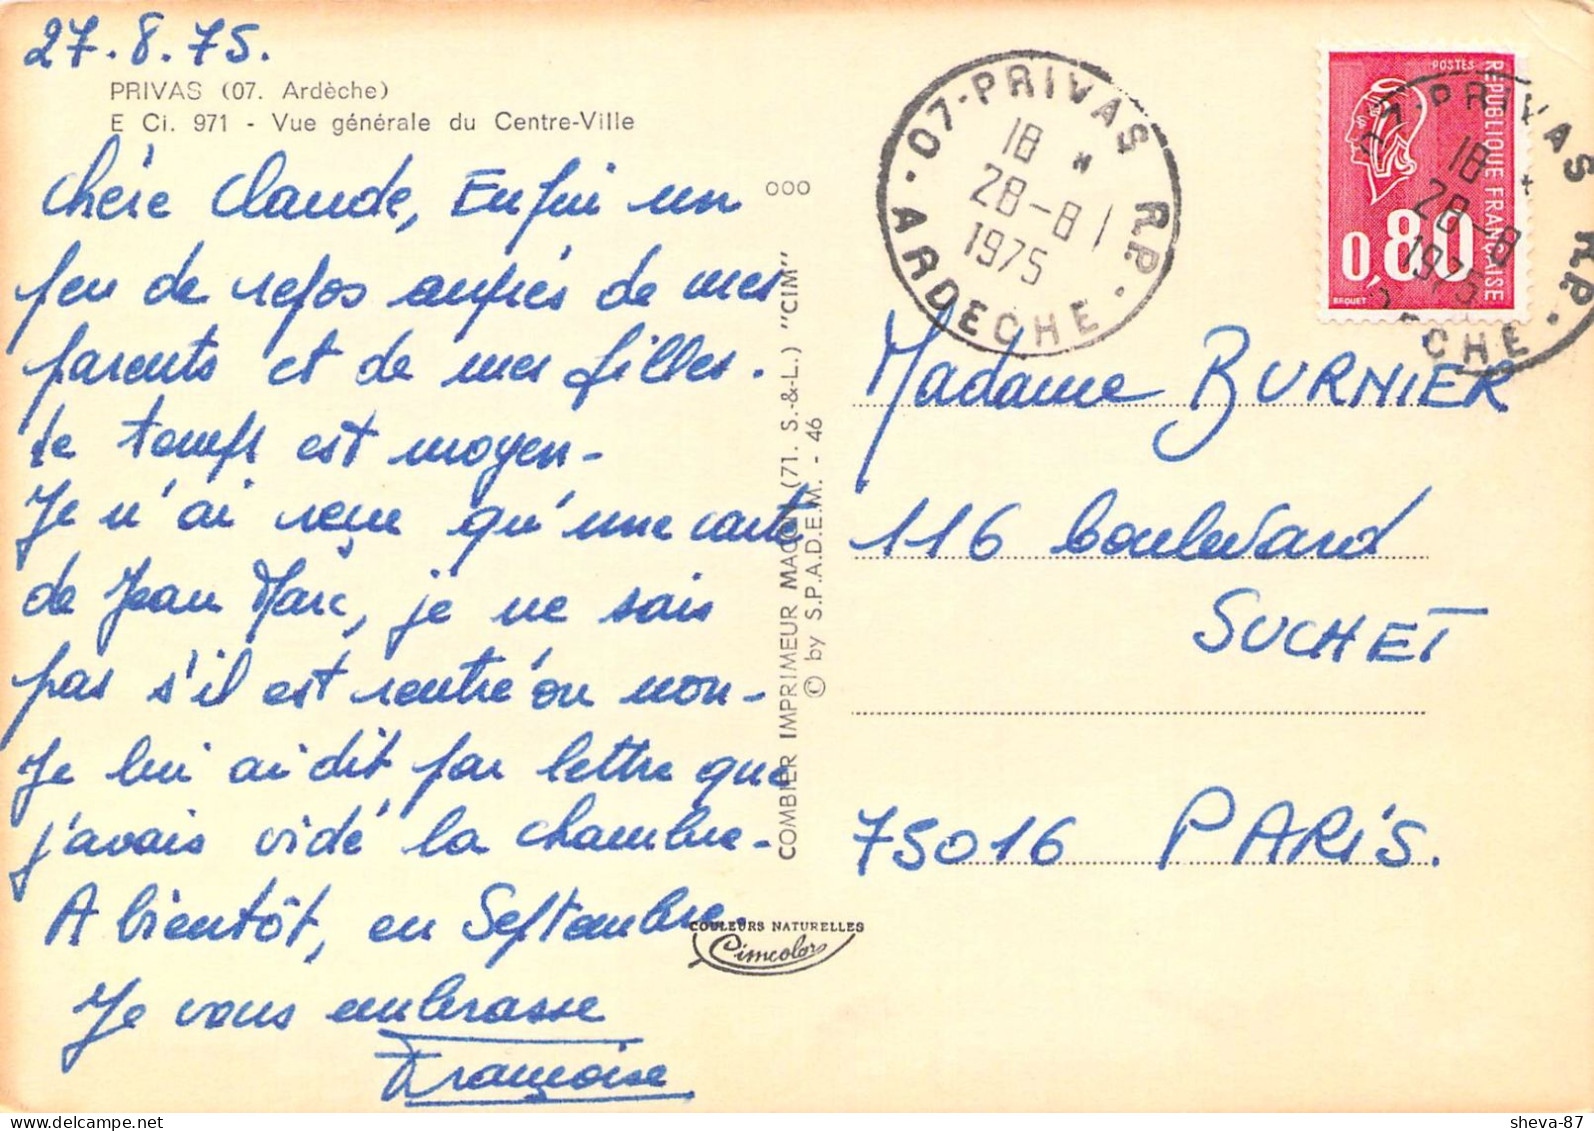 27.8.75.
PRIVAS (07. Ardèche)
E Ci. 971 - Vue générale du Centre-Ville
Chère Claude, Enfin un
peu de repos auprès de mes
parents et de mes filles.
Le temps est moyen-
Je n'ai reçu qu'une carte
de Jean Marc, je ne sais
pas s'il est rentré ou non-
Je lui ai dit par lettre que
j'avais vidé la chambre-
A bientôt, en Septembre.
Je vous embrasse
Françoise
000
COMBIER IMPRIMEUR MACON (71. S.-&-L.) "CIM"
© by S.P.A.D.E.M. - 46
COULEURS NATURELLES
Cimcolor
07-PRIVAS R.P.
18 *
28-8
1975
ARDECHE
POSTES
REPUBLIQUE FRANÇAISE
0,80
BEQUET
07-PRIVAS R.P.
18
28-8
1975
ARDECHE
Madame BURNIER
116 boulevard
SUCHET
75016 PARIS.
sheva-87